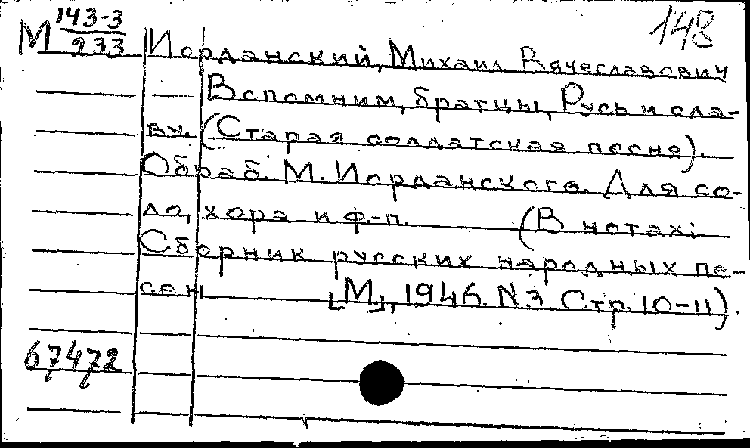 М 143-3/933 148
Иорданский, Михаил Вячеславович
Вспомним, братцы, Русь и сла-
ву. (Старая солдатская песня).
Обраб. М. Иорданского. Для со-
ло, хора и ф.-п. (В нотах:
Сборник русских народных пе-
сен [М], 1946. №3 Стр. 10-11).
67472